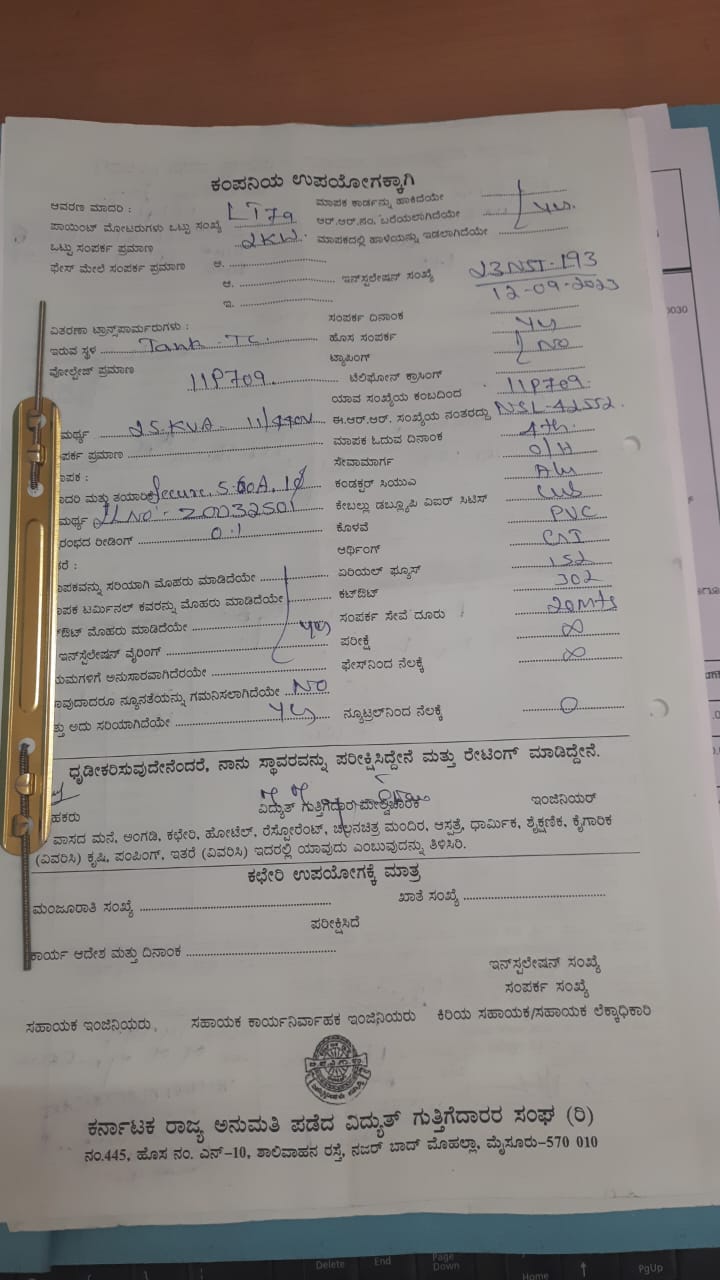 ಕಂಪನಿಯ ಉಪಯೋಗಕ್ಕಾಗಿ
ಆವರಣ ಮಾದರಿ : LT7a
ಮಾಪಕ ಕಾರ್ಡನ್ನು ಹಾಕಿದೆಯೇ
ಪಾಯಿಂಟ್ ಮೋಟರುಗಳು ಒಟ್ಟು ಸಂಖ್ಯೆ
ಆರ್.ಆರ್.ನಂ. ಬರೆಯಲಾಗಿದೆಯೇ Yes.
ಒಟ್ಟು ಸಂಪರ್ಕ ಪ್ರಮಾಣ 2KW.
ಮಾಪಕದಲ್ಲಿ ಹಾಳೆಯನ್ನು ಇಡಲಾಗಿದೆಯೇ
ಫೇಸ್ ಮೇಲೆ ಸಂಪರ್ಕ ಪ್ರಮಾಣ ಆ.
ಆ. ಇನ್‌ಸ್ಟಲೇಷನ್ ಸಂಖ್ಯೆ 23NST-193
12-09-2023
ಇ.
ಸಂಪರ್ಕ ದಿನಾಂಕ
ವಿತರಣಾ ಟ್ರಾನ್ಸ್‌ಪಾರ್ಮರುಗಳು :
ಹೊಸ ಸಂಪರ್ಕ Yes
ಇರುವ ಸ್ಥಳ Tank TC.
ಟ್ಯಾಪಿಂಗ್ NO
ವೋಲ್ಟೇಜ್ ಪ್ರಮಾಣ 11P709.
ಟೆಲಿಫೋನ್ ಕ್ರಾಸಿಂಗ್
ಯಾವ ಸಂಖ್ಯೆಯ ಕಂಬದಿಂದ 11P709.
ಮರ್ಥ್ಯ 25.KVA
ಈ.ಆರ್.ಆರ್. ಸಂಖ್ಯೆಯ ನಂತರದ್ದು NSL-42552.
ರ್ಪಕ ಪ್ರಮಾಣ
ಮಾಪಕ ಓದುವ ದಿನಾಂಕ 4th.
ಾಪಕ :
ಸೇವಾಮಾರ್ಗ O/H
ಾದರಿ ಮತ್ತು ತಯಾರಿಕೆ Secure. 5-60A. 1Ø
ಕಂಡಕ್ಟರ್ ಸಿಯುಎ
ಮರ್ಥ್ಯ SLNo - 20032501
ಕೇಬಲ್ಲು ಡಬ್ಲ್ಯೂಪಿ ವಿಐರ್ ಸಿಟಿಸ್
ರಂಭದ ರೀಡಿಂಗ್ 0.1
ಕೊಳವೆ PVC
ತರೆ :
ಆರ್ಥಿಂಗ್
ಾಪಕವನ್ನು ಸರಿಯಾಗಿ ಮೊಹರು ಮಾಡಿದೆಯೇ
ಏರಿಯಲ್ ಫ್ಯೂಸ್
ಾಪಕ ಟರ್ಮಿನಲ್ ಕವರನ್ನು ಮೊಹರು ಮಾಡಿದೆಯೇ
ಕಟ್‌ಔಟ್ 302
ಟ್‌ಔಟ್ ಮೊಹರು ಮಾಡಿದೆಯೇ Yes
ಸಂಪರ್ಕ ಸೇವೆ ದೂರು 20Mts
ಇನ್‌ಸ್ಟೆಲೇಷನ್ ವೈರಿಂಗ್
ಪರೀಕ್ಷೆ ∞
ಯಮಗಳಿಗೆ ಅನುಸಾರವಾಗಿದೆರಯೇ
ಫೇಸ್‌ನಿಂದ ನೆಲಕ್ಕೆ ∞
ಾವುದಾದರೂ ನ್ಯೂನತೆಯನ್ನು ಗಮನಿಸಲಾಗಿದೆಯೇ NO
ತ್ತು ಅದು ಸರಿಯಾಗಿದೆಯೇ Yes
ನ್ಯೂಟ್ರಲ್‌ನಿಂದ ನೆಲಕ್ಕೆ 0
ಧೃಡೀಕರಿಸುವುದೇನೆಂದರೆ, ನಾನು ಸ್ಥಾವರವನ್ನು ಪರೀಕ್ಷಿಸಿದ್ದೇನೆ ಮತ್ತು ರೇಟಿಂಗ್ ಮಾಡಿದ್ದೇನೆ.
ಹಕರು
ವಿದ್ಯುತ್ ಗುತ್ತಿಗೆದಾರ/ಮೇಲ್ವಿಚಾರಕ
ಇಂಜಿನಿಯರ್
ವಾಸದ ಮನೆ, ಅಂಗಡಿ, ಕಛೇರಿ, ಹೋಟೆಲ್, ರೆಸ್ಟೋರೆಂಟ್, ಚಲನಚಿತ್ರ ಮಂದಿರ, ಆಸ್ಪತ್ರೆ, ಧಾರ್ಮಿಕ, ಶೈಕ್ಷಣಿಕ, ಕೈಗಾರಿಕ
(ವಿವರಿಸಿ) ಕೃಷಿ, ಪಂಪಿಂಗ್, ಇತರೆ (ವಿವರಿಸಿ) ಇದರಲ್ಲಿ ಯಾವುದು ಎಂಬುವುದನ್ನು ತಿಳಿಸಿರಿ.
ಕಛೇರಿ ಉಪಯೋಗಕ್ಕೆ ಮಾತ್ರ
ಮಂಜೂರಾತಿ ಸಂಖ್ಯೆ
ಖಾತೆ ಸಂಖ್ಯೆ
ಪರೀಕ್ಷಿಸಿದೆ
ಕಾರ್ಯ ಆದೇಶ ಮತ್ತು ದಿನಾಂಕ
ಇನ್‌ಸ್ಟಲೇಷನ್ ಸಂಖ್ಯೆ
ಸಂಪರ್ಕ ಸಂಖ್ಯೆ
ಸಹಾಯಕ ಇಂಜಿನಿಯರು, ಸಹಾಯಕ ಕಾರ್ಯನಿರ್ವಾಹಕ ಇಂಜಿನಿಯರು ಕಿರಿಯ ಸಹಾಯಕ/ಸಹಾಯಕ ಲೆಕ್ಕಾಧಿಕಾರಿ
ಕರ್ನಾಟಕ ರಾಜ್ಯ ಅನುಮತಿ ಪಡೆದ ವಿದ್ಯುತ್ ಗುತ್ತಿಗೆದಾರರ ಸಂಘ (ರಿ)
ನಂ.445, ಹೊಸ ನಂ. ಎನ್-10, ಶಾಲಿವಾಹನ ರಸ್ತೆ, ನಜರ್ ಬಾದ್ ಮೊಹಲ್ಲಾ, ಮೈಸೂರು-570 010
Delete End Page Down Home PgUp